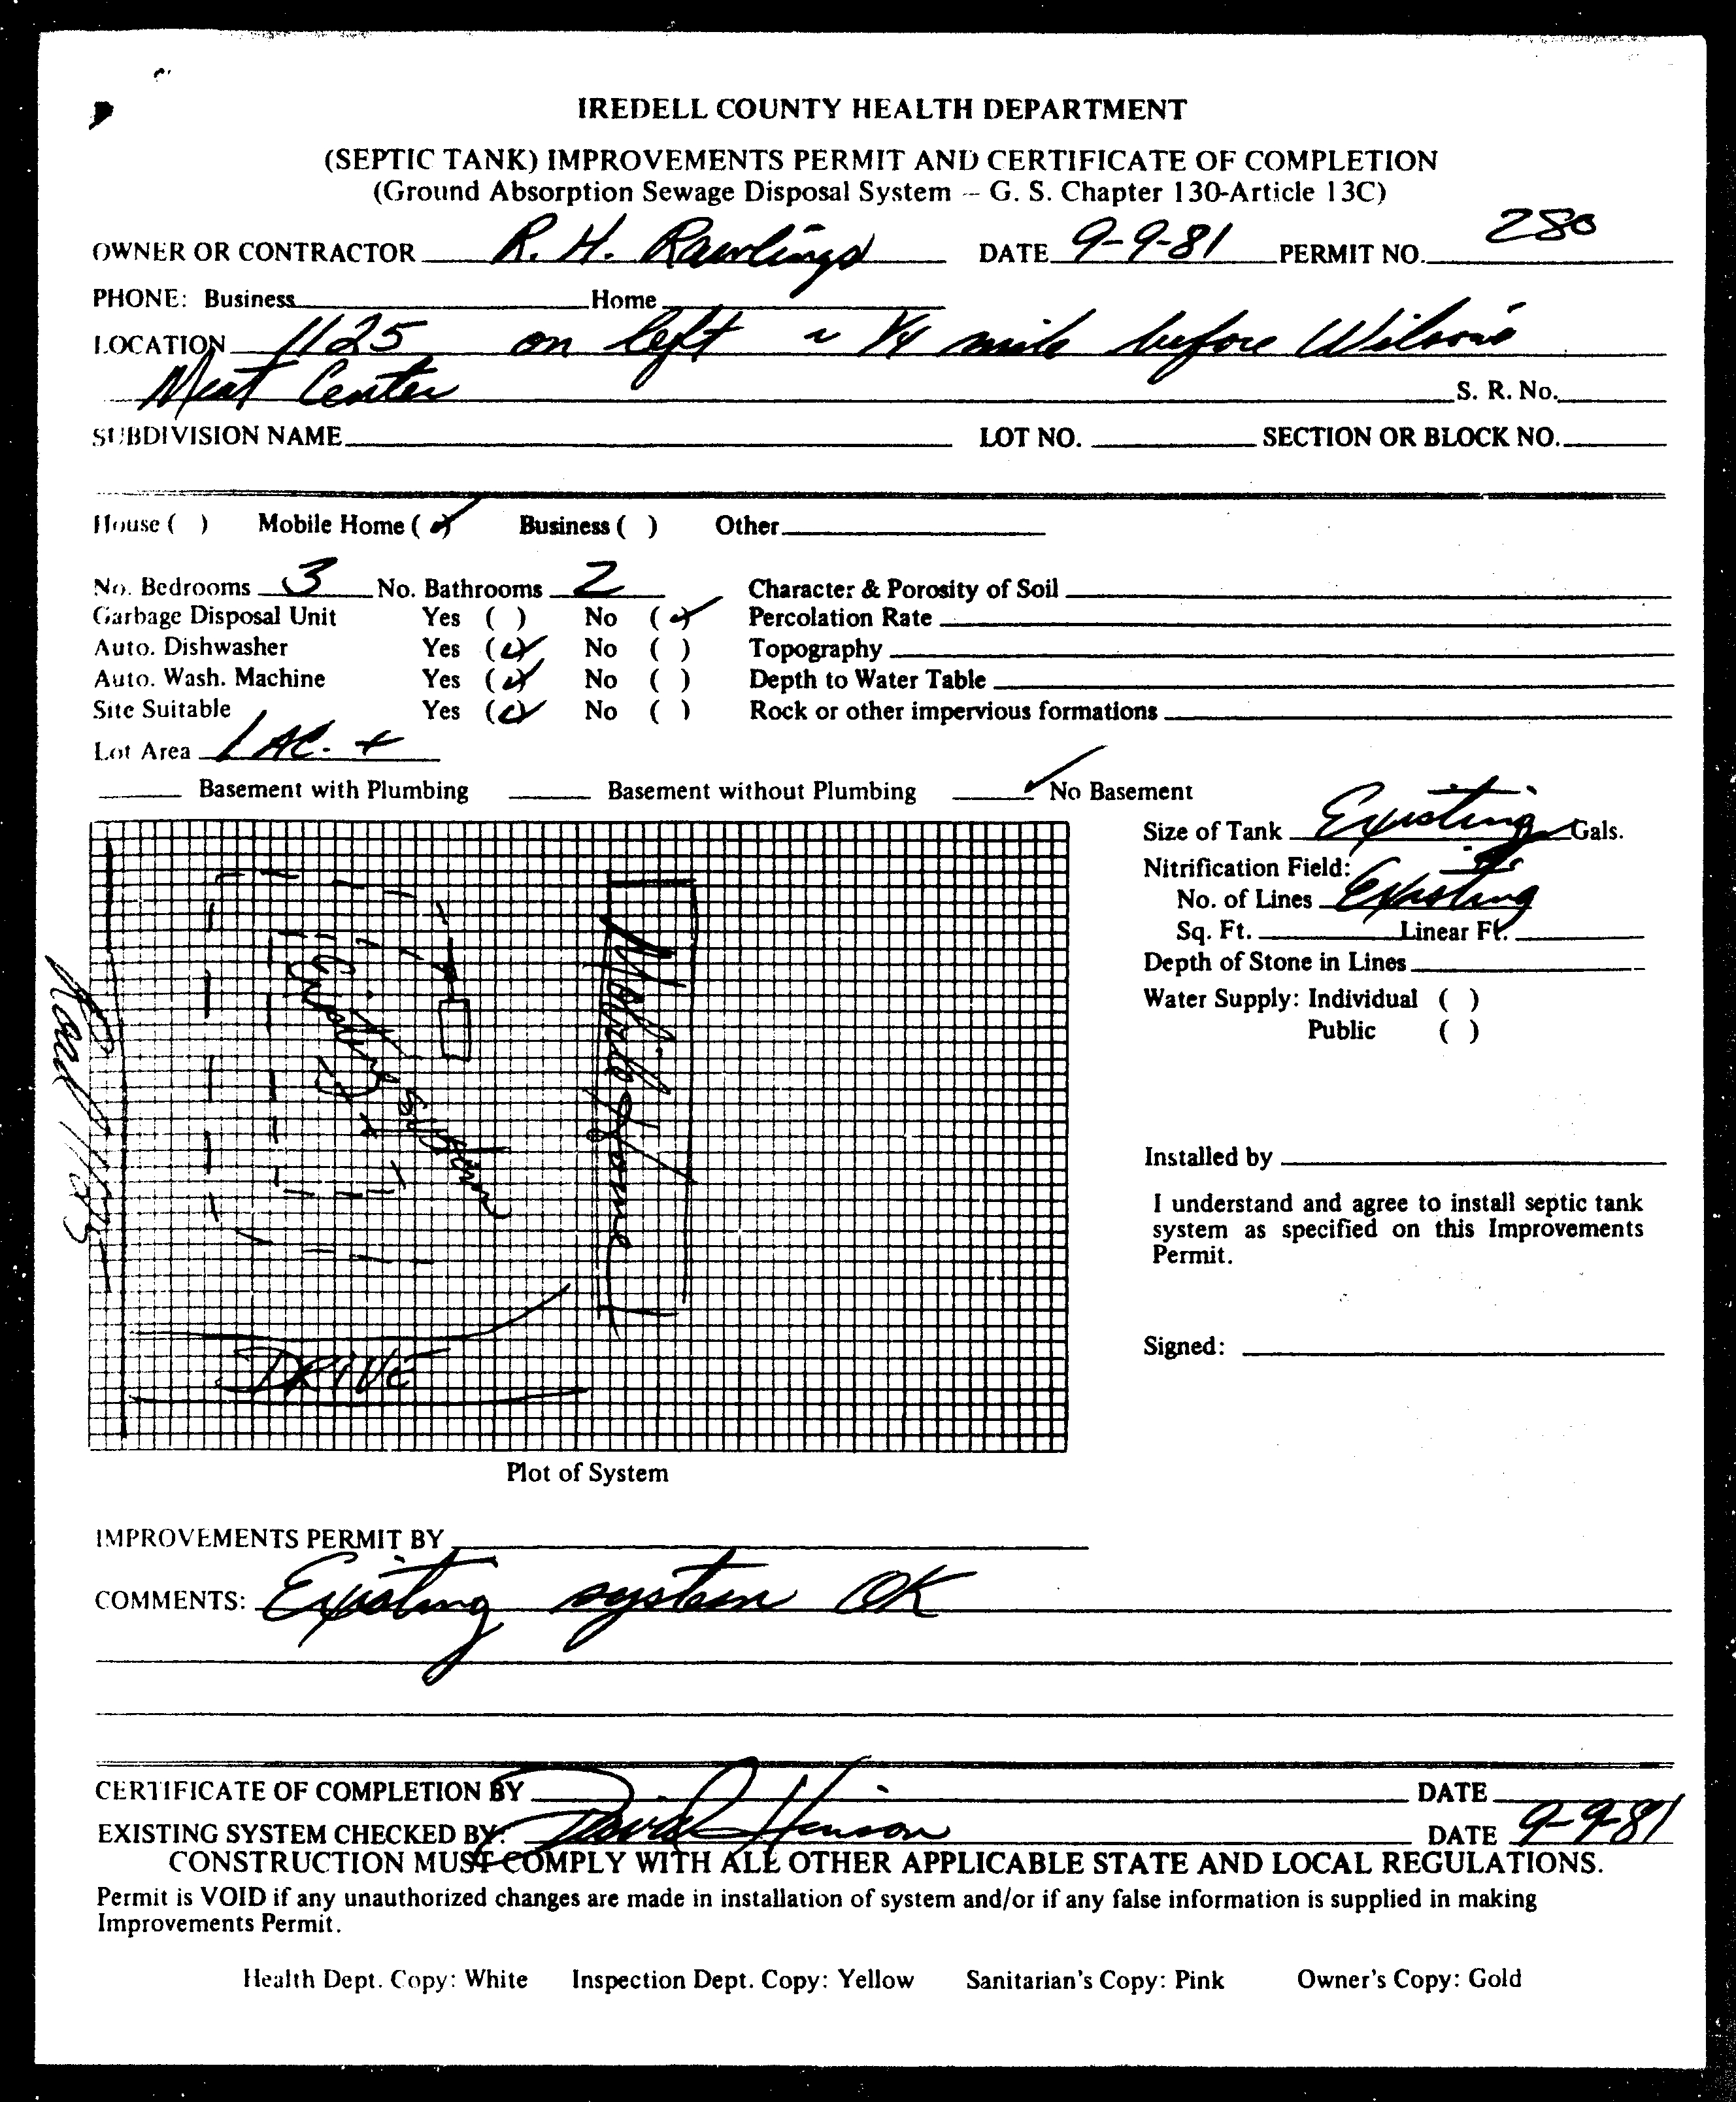 IREDELL COUNTY HEALTH DEPARTMENT
(SEPTIC TANK) IMPROVEMENTS PERMIT AND CERTIFICATE OF COMPLETION
(Ground Absorption Sewage Disposal System -- G. S. Chapter 130-Article 13C)
OWNER OR CONTRACTOR R. H. Rawlings DATE 9-9-81 PERMIT NO. 280
PHONE: Business Home
LOCATION 1125 on left ~ 1/4 mile before Wilson's
Meat Center S. R. No.
SUBDIVISION NAME LOT NO. SECTION OR BLOCK NO.
House ( ) Mobile Home (✓) Business ( ) Other
No. Bedrooms 3 No. Bathrooms 2 Character & Porosity of Soil
Garbage Disposal Unit Yes ( ) No (✓) Percolation Rate
Auto. Dishwasher Yes (✓) No ( ) Topography
Auto. Wash. Machine Yes (✓) No ( ) Depth to Water Table
Site Suitable Yes (✓) No ( ) Rock or other impervious formations
Lot Area 1 AC. +
Basement with Plumbing Basement without Plumbing ✓ No Basement
Size of Tank Existing Gals.
Nitrification Field:
No. of Lines Existing
Sq. Ft. Linear Ft.
Depth of Stone in Lines
Water Supply: Individual ( )
Public ( )
Installed by
I understand and agree to install septic tank
system as specified on this Improvements
Permit.
Signed:
Road 1125
Existing System
Mobile Home
DRIVE
Plot of System
IMPROVEMENTS PERMIT BY
COMMENTS: Existing system OK
CERTIFICATE OF COMPLETION BY DATE
EXISTING SYSTEM CHECKED BY: David Hinson DATE 9-9-81
CONSTRUCTION MUST COMPLY WITH ALL OTHER APPLICABLE STATE AND LOCAL REGULATIONS.
Permit is VOID if any unauthorized changes are made in installation of system and/or if any false information is supplied in making
Improvements Permit.
Health Dept. Copy: White Inspection Dept. Copy: Yellow Sanitarian's Copy: Pink Owner's Copy: Gold